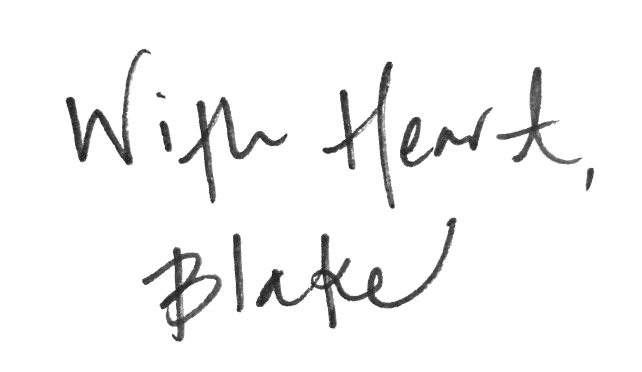 With Heart,
Blake